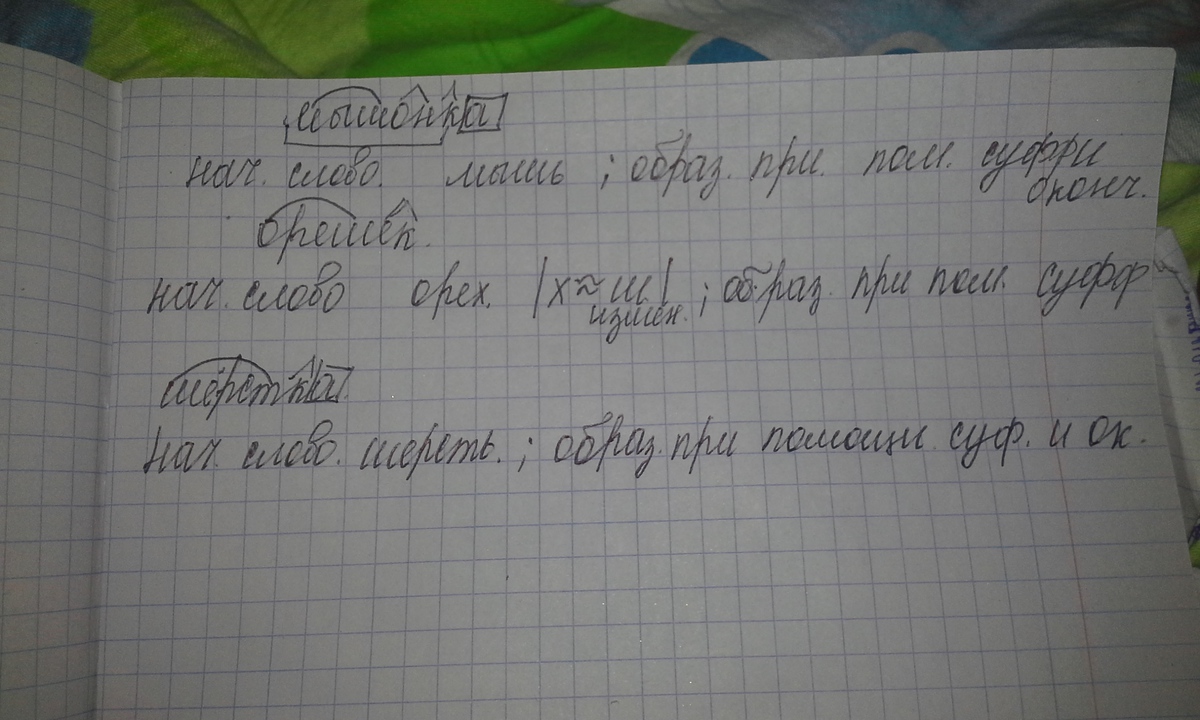 мышонка
нач. слово. мышь ; образ. при. пом. суф при
оконч.
орешек.
нач. слово орех. |х≈ш| ; образ. при пом. суфф
измен.
шёрстка
нач. слово. шерсть. ; образ. при помощи суф. и ок.